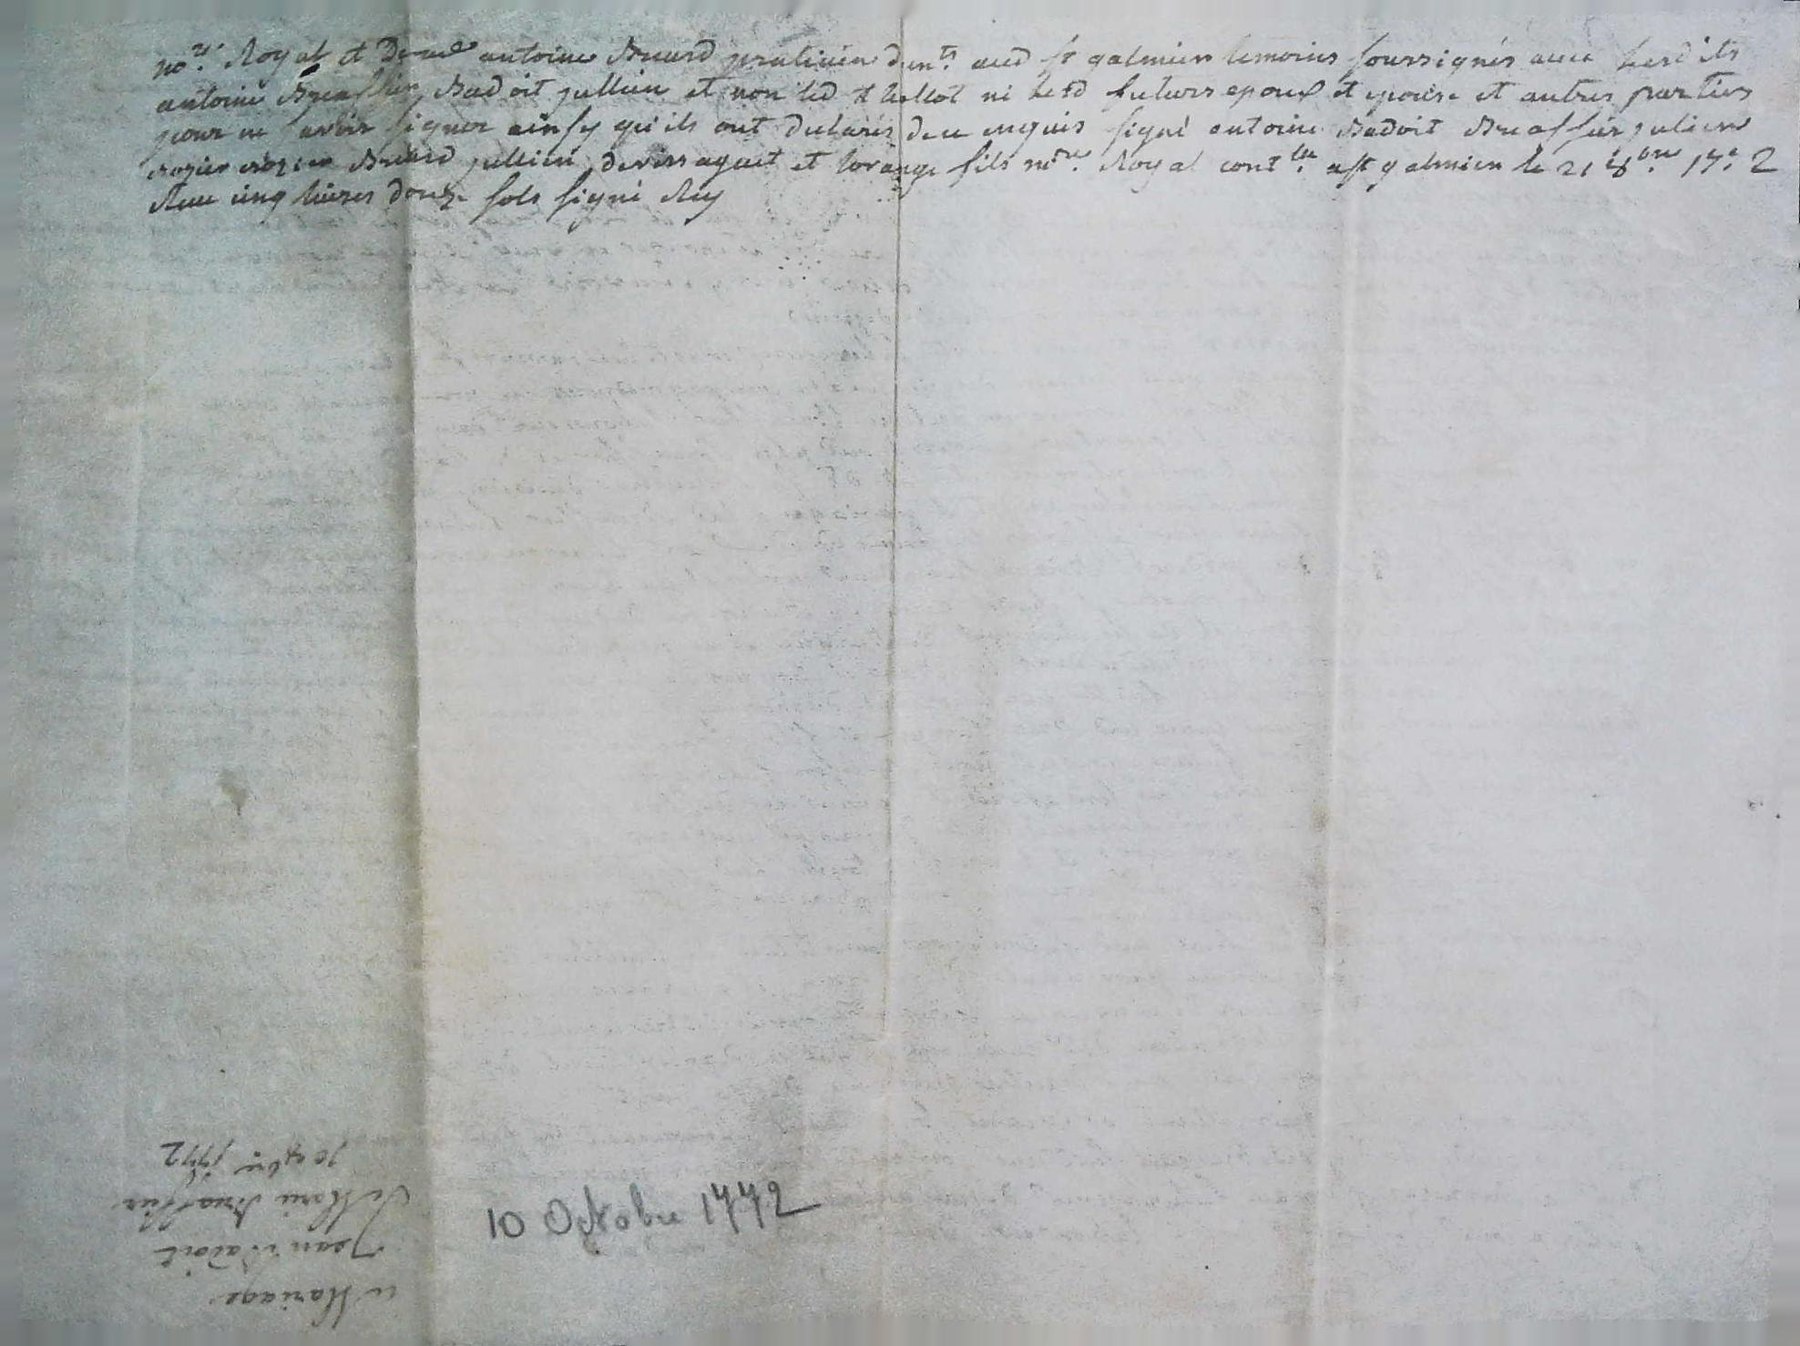 no.re Royal et Demeure antoine Bruard praticien d'un.ts aud st galmier temoins soussignés avec lesdits
antoine Bruassier, Badoit jullien et non led thollot ni lesd futurs epoux et epouse et autres parties
pour ne savoir signer ainsy qu'ils ont declarés deu enquis signé antoine Badoit Bruassier julien
crozier crozier Bruard jullien devissaguet et lorange fils n.re Royal cont.lé a st galmier le 21 8.bre 17.. 2
Reçu cinq livres douze sols signé Rey
10 Octobre 1772
Mariage
Jean Badoit
De Marie Bruassier
10 8bre 1772